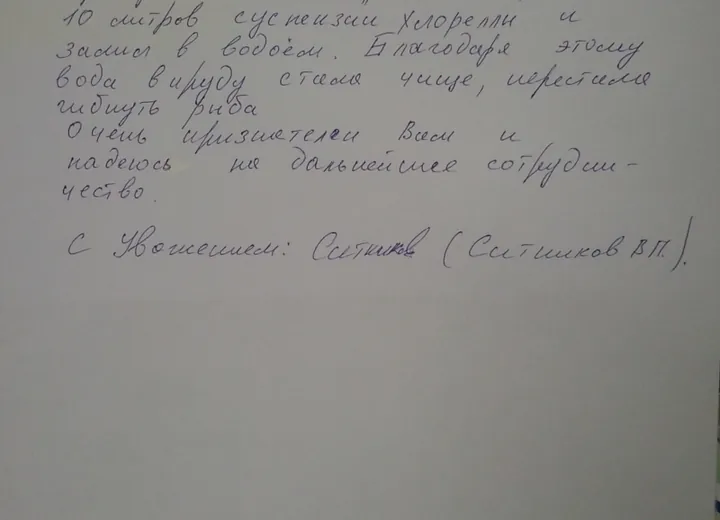 10 литров суспензии хлореллы и
залил в водоём. Благодаря этому
вода в пруду стала чище, перестала
гибнуть рыба
Очень признателен Вам и
надеюсь на дальнейшее сотрудни-
чество.
С Уважением: Ситников (Ситников В.П.).